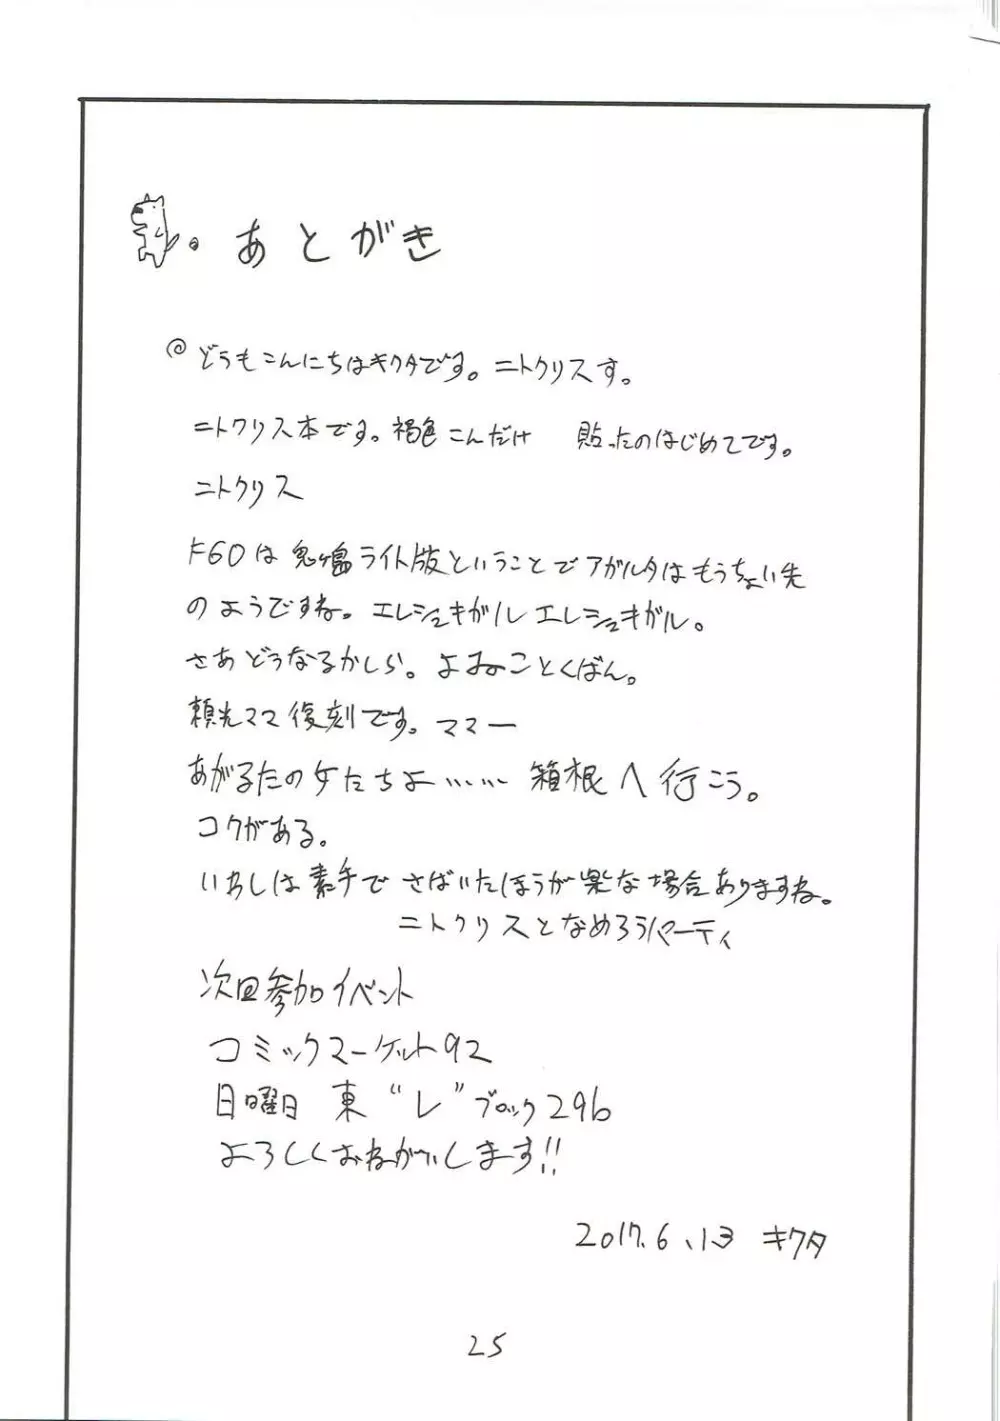 あとがき
@どうもこんにちはキクタです。ニトクリスす。
ニトクリス本です。褐色こんだけ 貼ったのはじめてです。
ニトクリス
FGOは鬼ヶ島ライト版ということでアガルタはもうちょい先
のようですね。エレシュキガル エレシュキガル。
さあどうなるかしら。よみのことくばん。
頼光ママ復刻です。ママー
あがるたの女たちよ…… 箱根へ行こう。
コクがある。
いわしは素手でさばいたほうが楽な場合ありますね。
ニトクリスとなめろうパーティ
次回参加イベント
コミックマーケット92
日曜日 東 “レ” ブロック29b
よろしくおねがいします!!
2017.6.13 キクタ
25